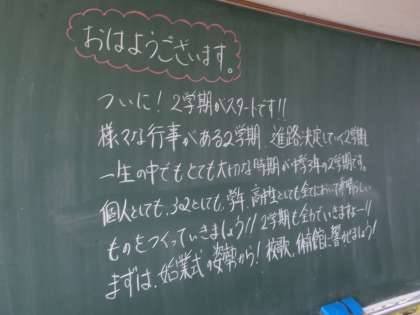 おはようございます。
ついに！2学期がスタートです!!
様々な行事がある2学期、進路決定していく2学期
一生の中でもとても大切な時期が中学3年の2学期です。
個人としても、3-2としても、学年、高柱としても全てにおいて素晴らしい
ものをつくっていきましょう!! 2学期も全力でいきますよー!!
まずは、始業式の姿勢から！校歌、体育館に響かせましょう！